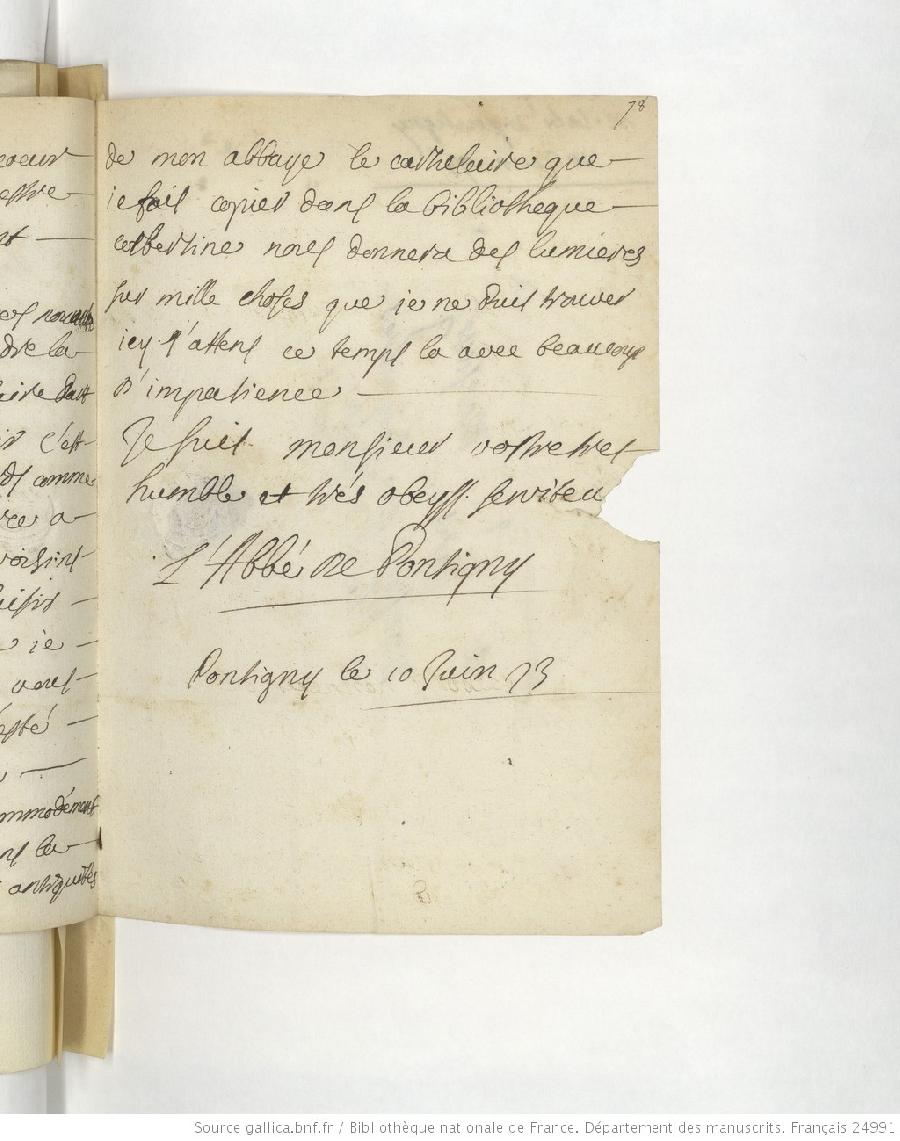 78
de mon abbaye le carthulaire que
ie fais copier dans la bibliotheque
colbertine nous donnera des lumieres
sur mille choses que ie ne puis trouver
icy i'attens ce temps la avec beaucoup
d'impatience
Je suis monsieur vostre tres
humble et trés obeyss. serviteu
L'Abbé de Pontigny
Pontigny le 10 Juin 73
dre la
c'est
comme
ie
commodément
antiquités
Source gallica.bnf.fr / Bibliothèque nationale de France. Département des manuscrits. Français 24991